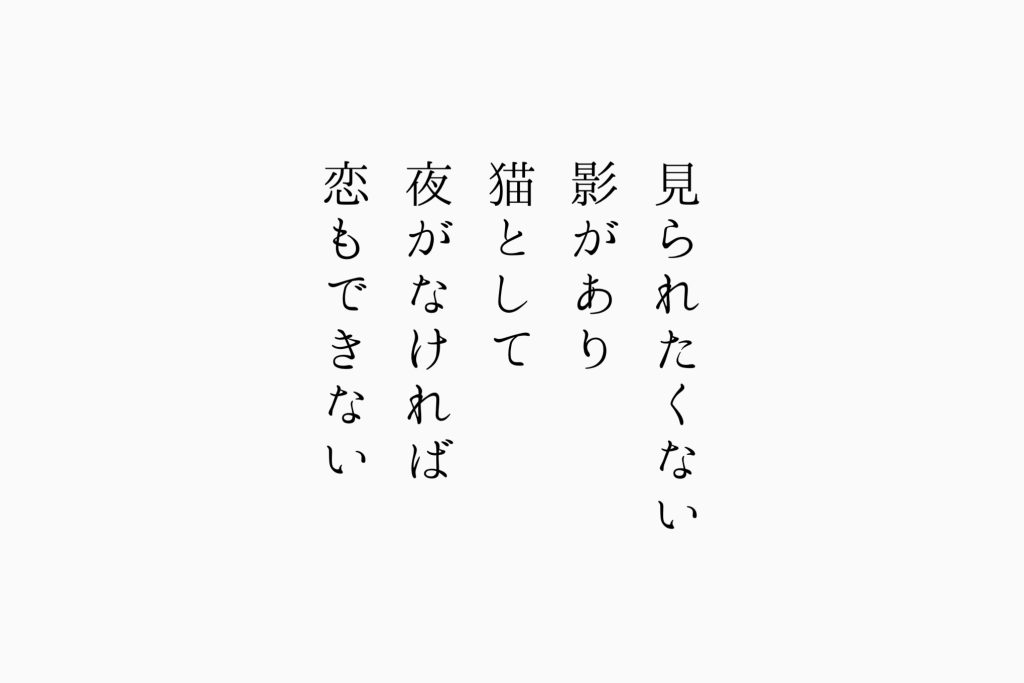 見られたくない
影があり
猫として
夜がなければ
恋もできない